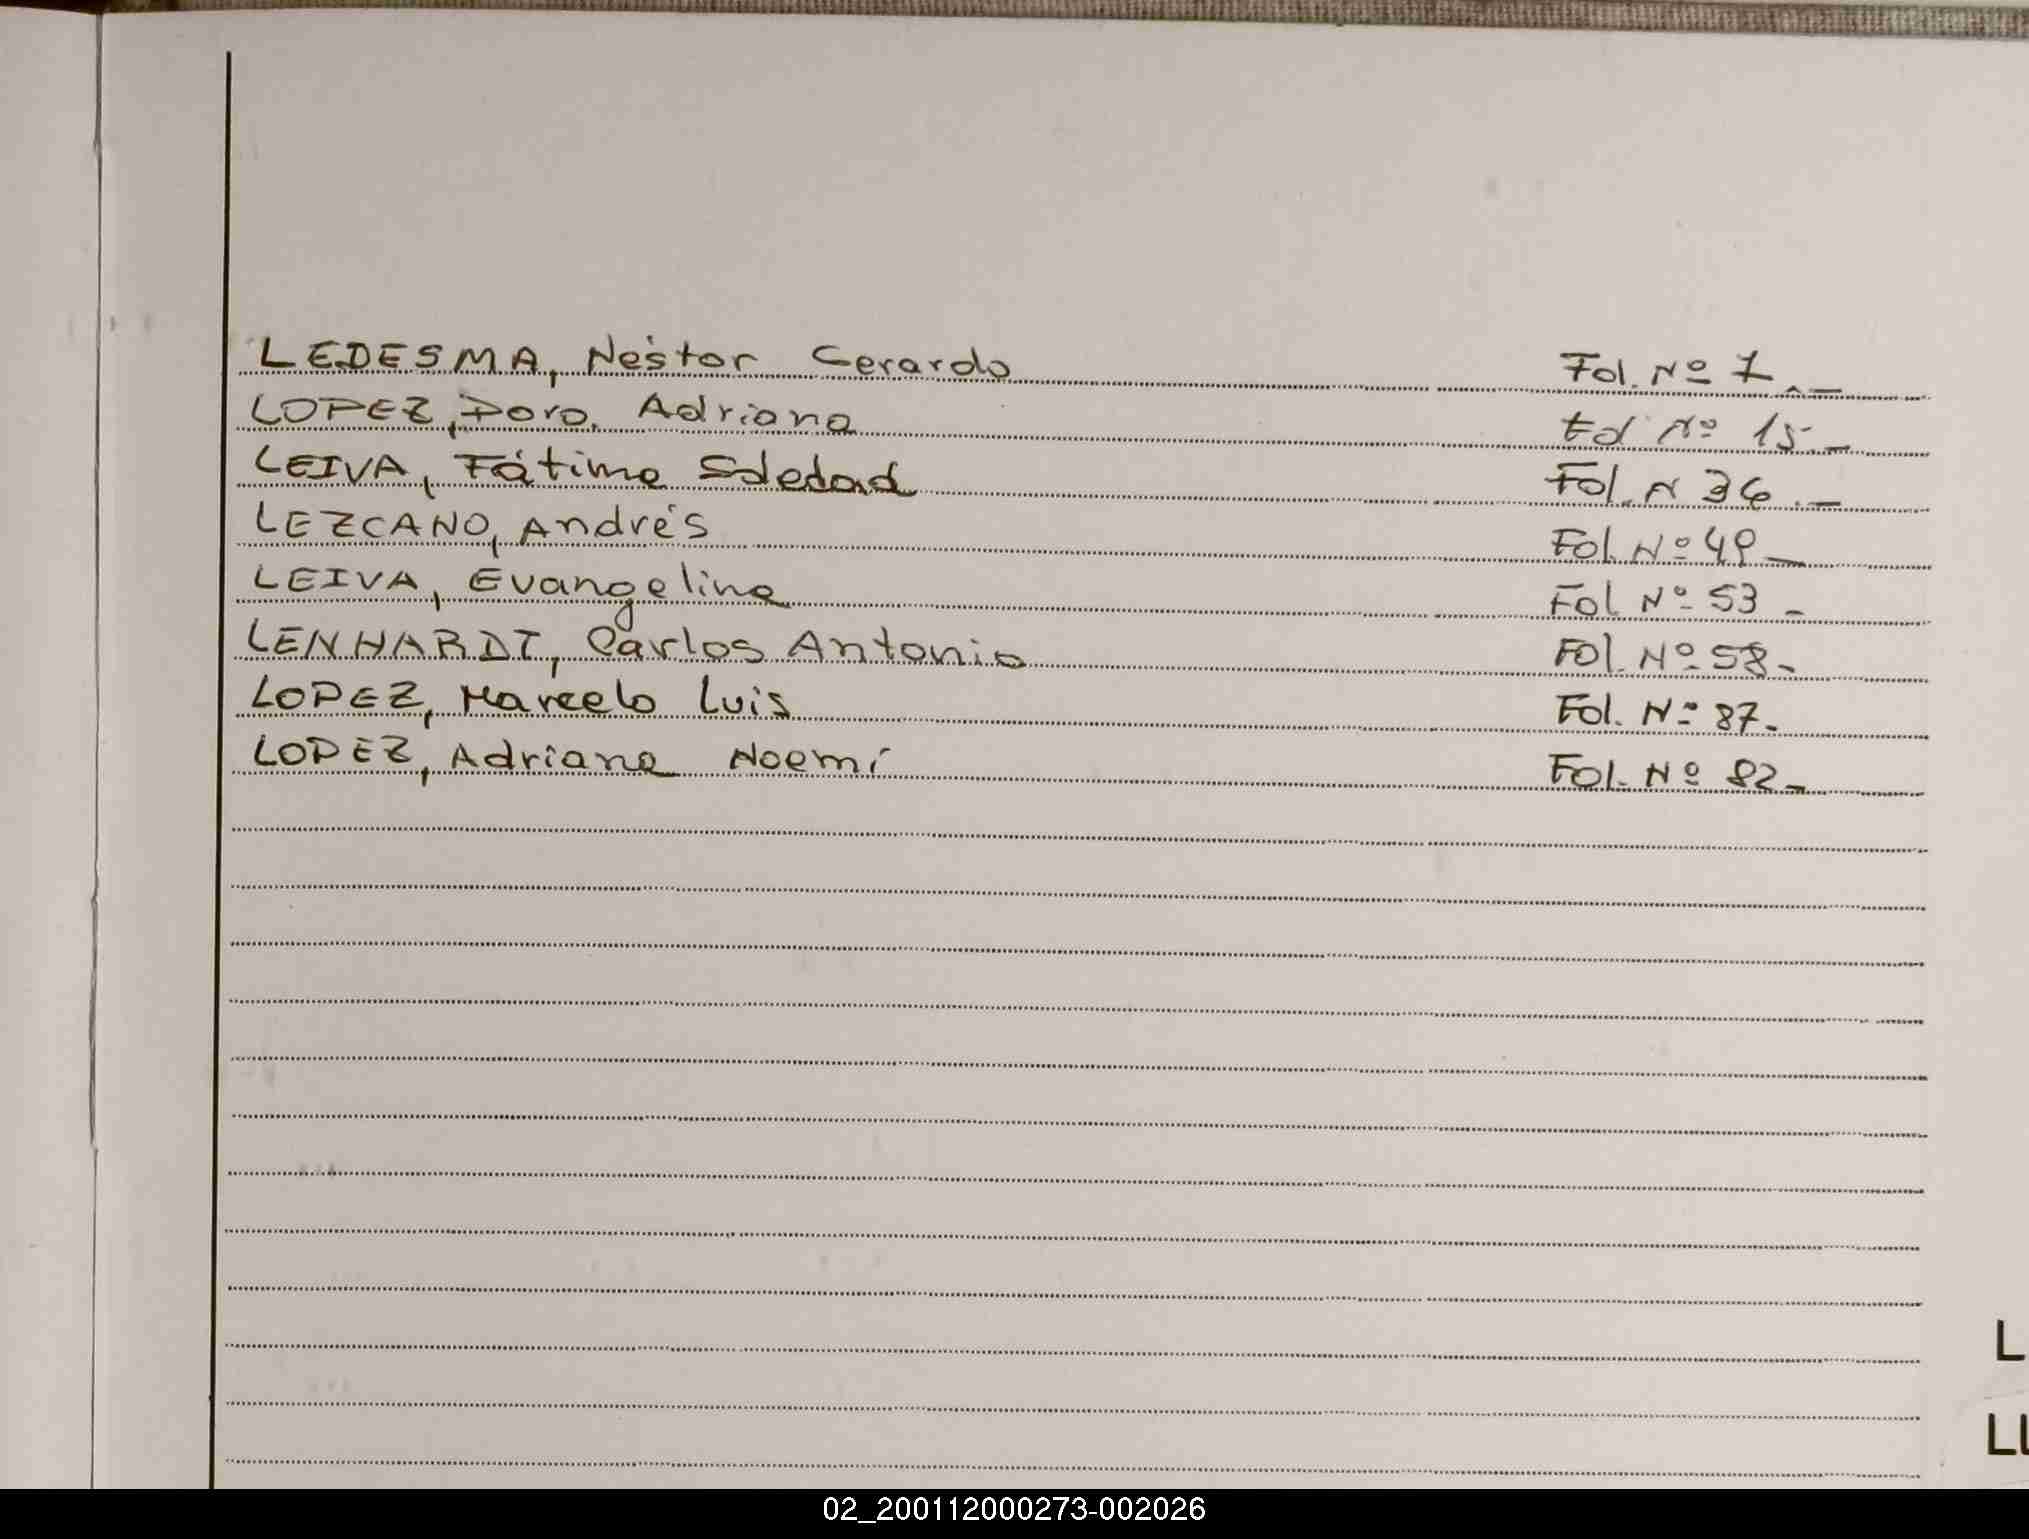 LEDESMA, Néstor Gerardo Fol. Nº 7.-
LOPEZ, Dora Adriana Fol Nº 15.-
LEIVA, Fátima Soledad Fol. N 36.-
LEZCANO, Andrés Fol. Nº 49-
LEIVA, Evangelina Fol Nº 53-
LENHARDT, Carlos Antonio Fol. Nº 58-
LOPEZ, Marcelo Luis Fol. Nº 87-
LOPEZ, Adriana Noemí Fol. Nº 82-
L
LL
02_200112000273-002026